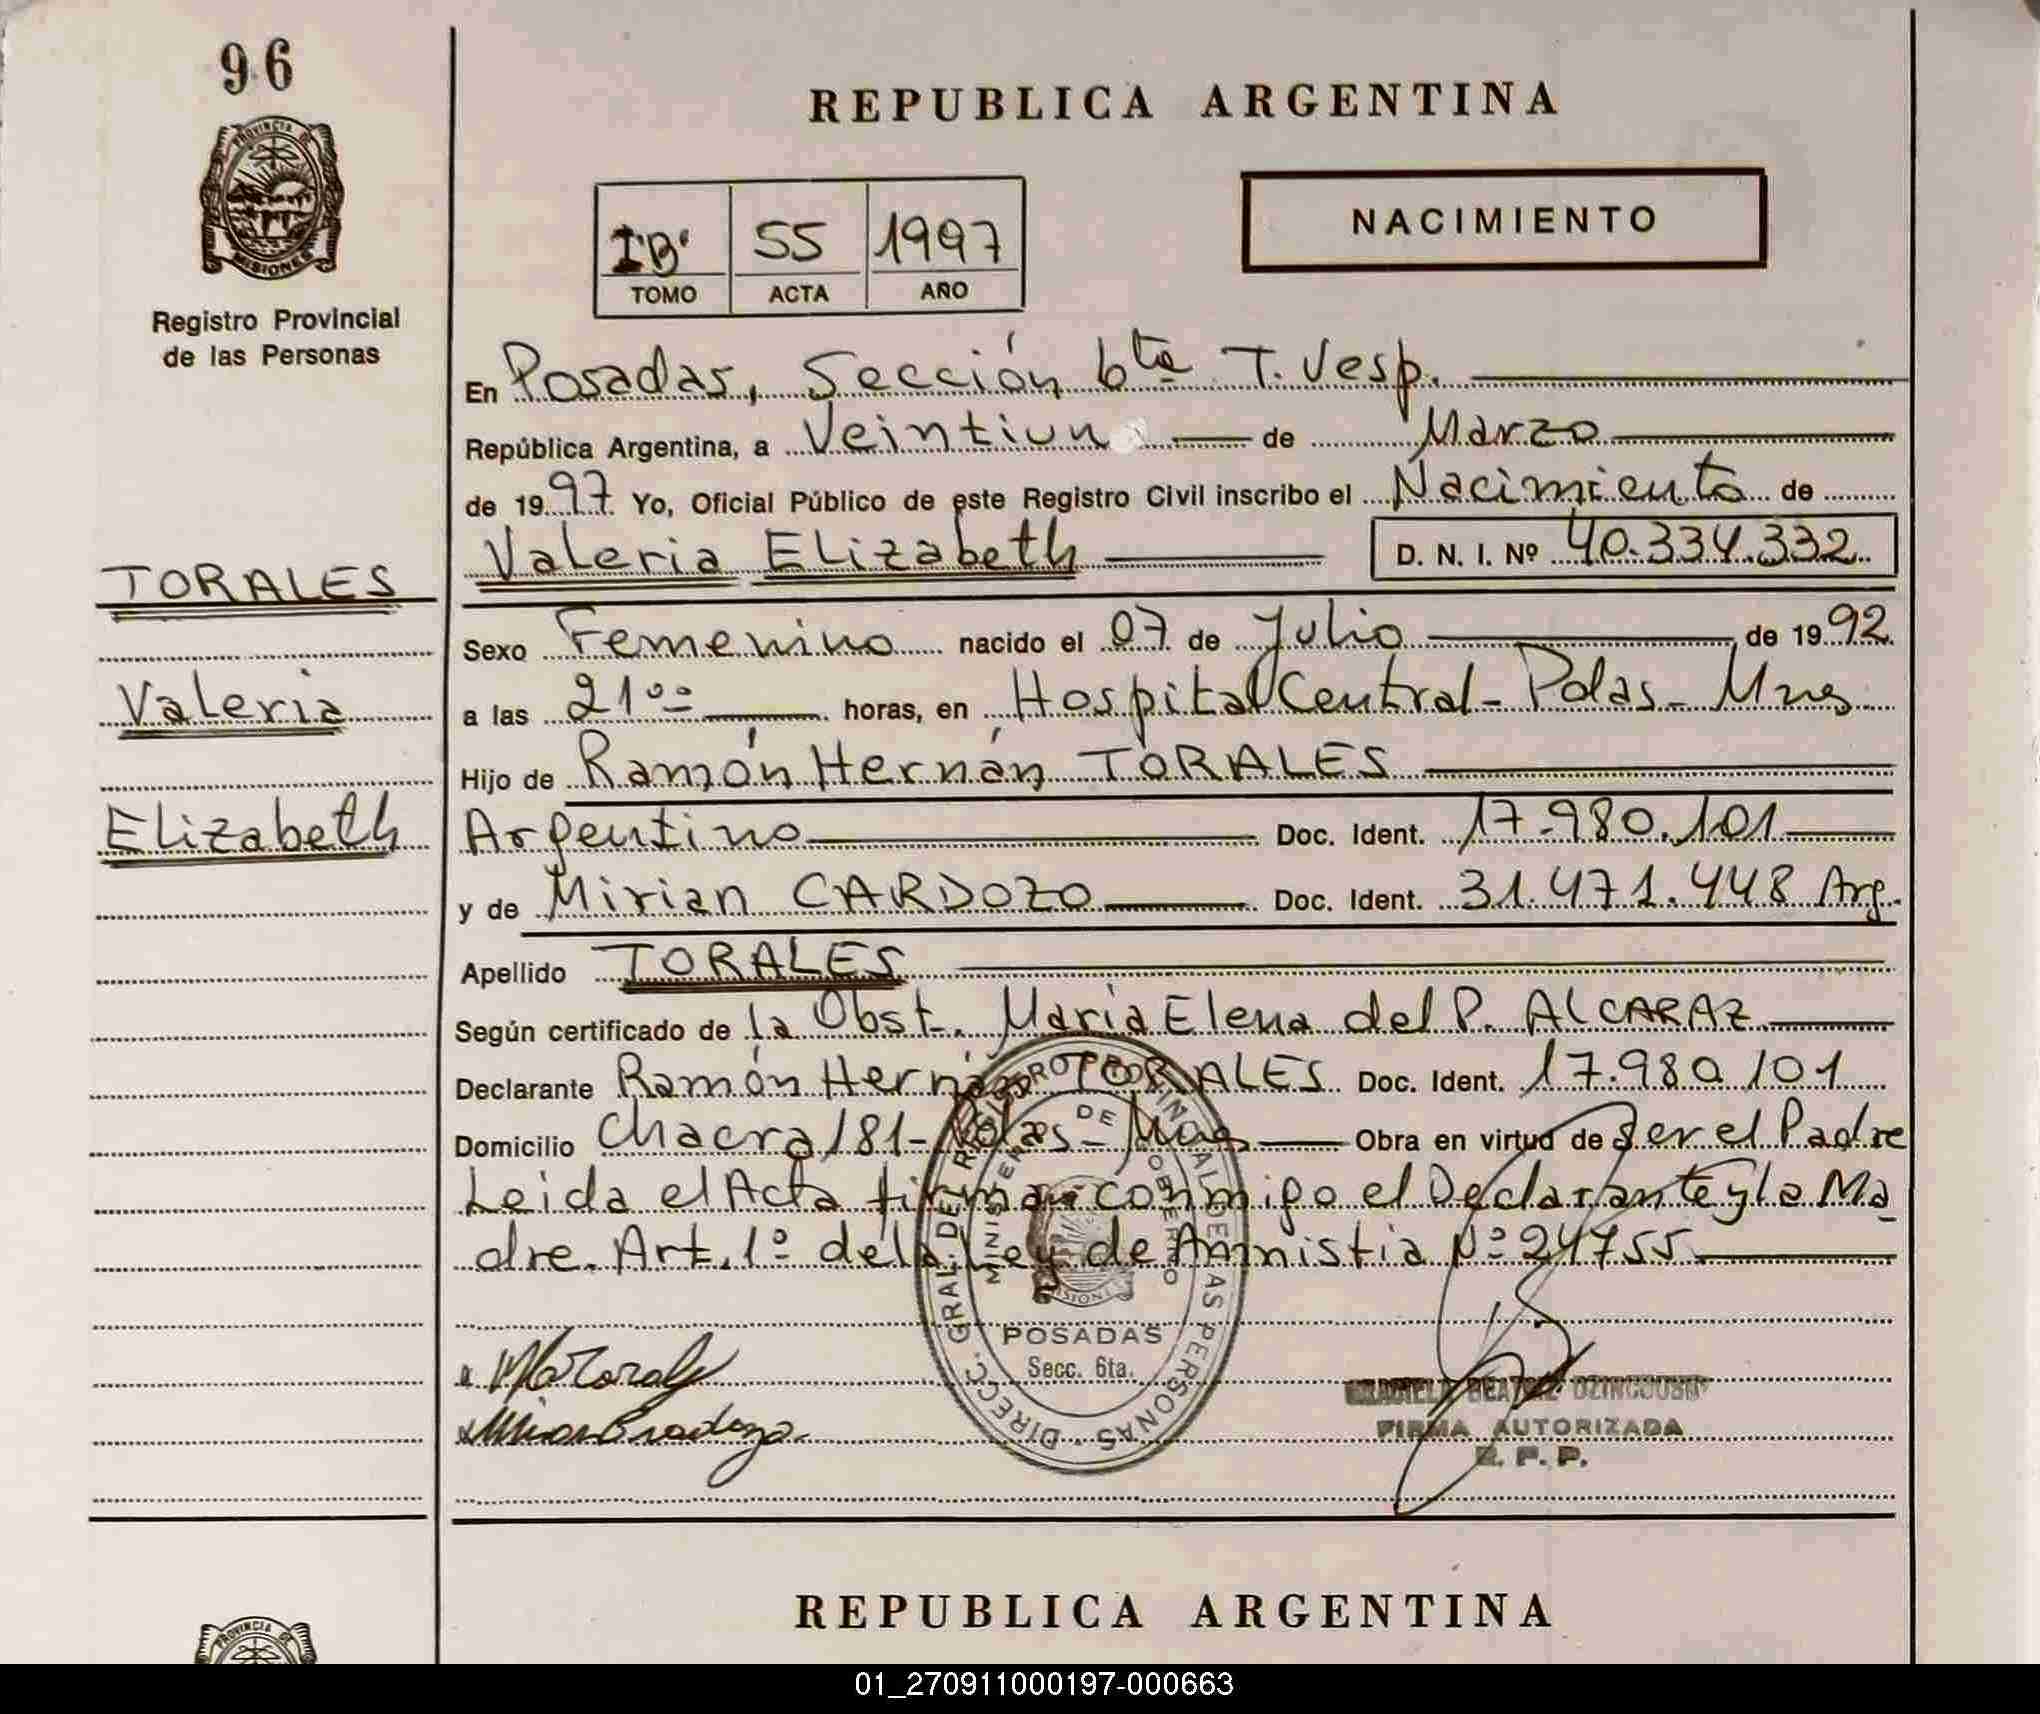 96
PROVINCIA DE
MISIONES
Registro Provincial
de las Personas
REPUBLICA ARGENTINA
I"B" 55 1997
TOMO ACTA AÑO
NACIMIENTO
En Posadas, Sección 6ta T. Vesp.
República Argentina, a Veintiun de Marzo
de 1997 Yo, Oficial Público de este Registro Civil inscribo el Nacimiento de
Valeria Elizabeth D. N. I. Nº 40.334.332
TORALES
Valeria
Elizabeth
Sexo Femenino nacido el 07 de Julio de 1992
a las 21°° horas, en Hospital Central - Pdas - Mnes
Hijo de Ramón Hernán TORALES
Argentino Doc. Ident. 17.980.101
y de Mirian CARDOZO Doc. Ident. 31.471.448 Arg.
Apellido TORALES
Según certificado de la Obst. María Elena del P. ALCARAZ
Declarante Ramón Hernán TORALES Doc. Ident. 17.980.101
Domicilio Chacra 181 - Pdas - Mnes Obra en virtud de Ser el Padre
Leida el Acta firman conmigo el Declarante y la Ma
dre. Art. 1º de la Ley de Amnistia Nº 24755
DIRECC. GRAL. DE REGISTRO PROVINCIAL DE LAS PERSONAS
MINISTERIO DE GOBIERNO
MISIONES
POSADAS
Secc. 6ta.
FIRMA AUTORIZADA
R. P. P.
REPUBLICA ARGENTINA
PROVINCIA DE
01_270911000197-000663